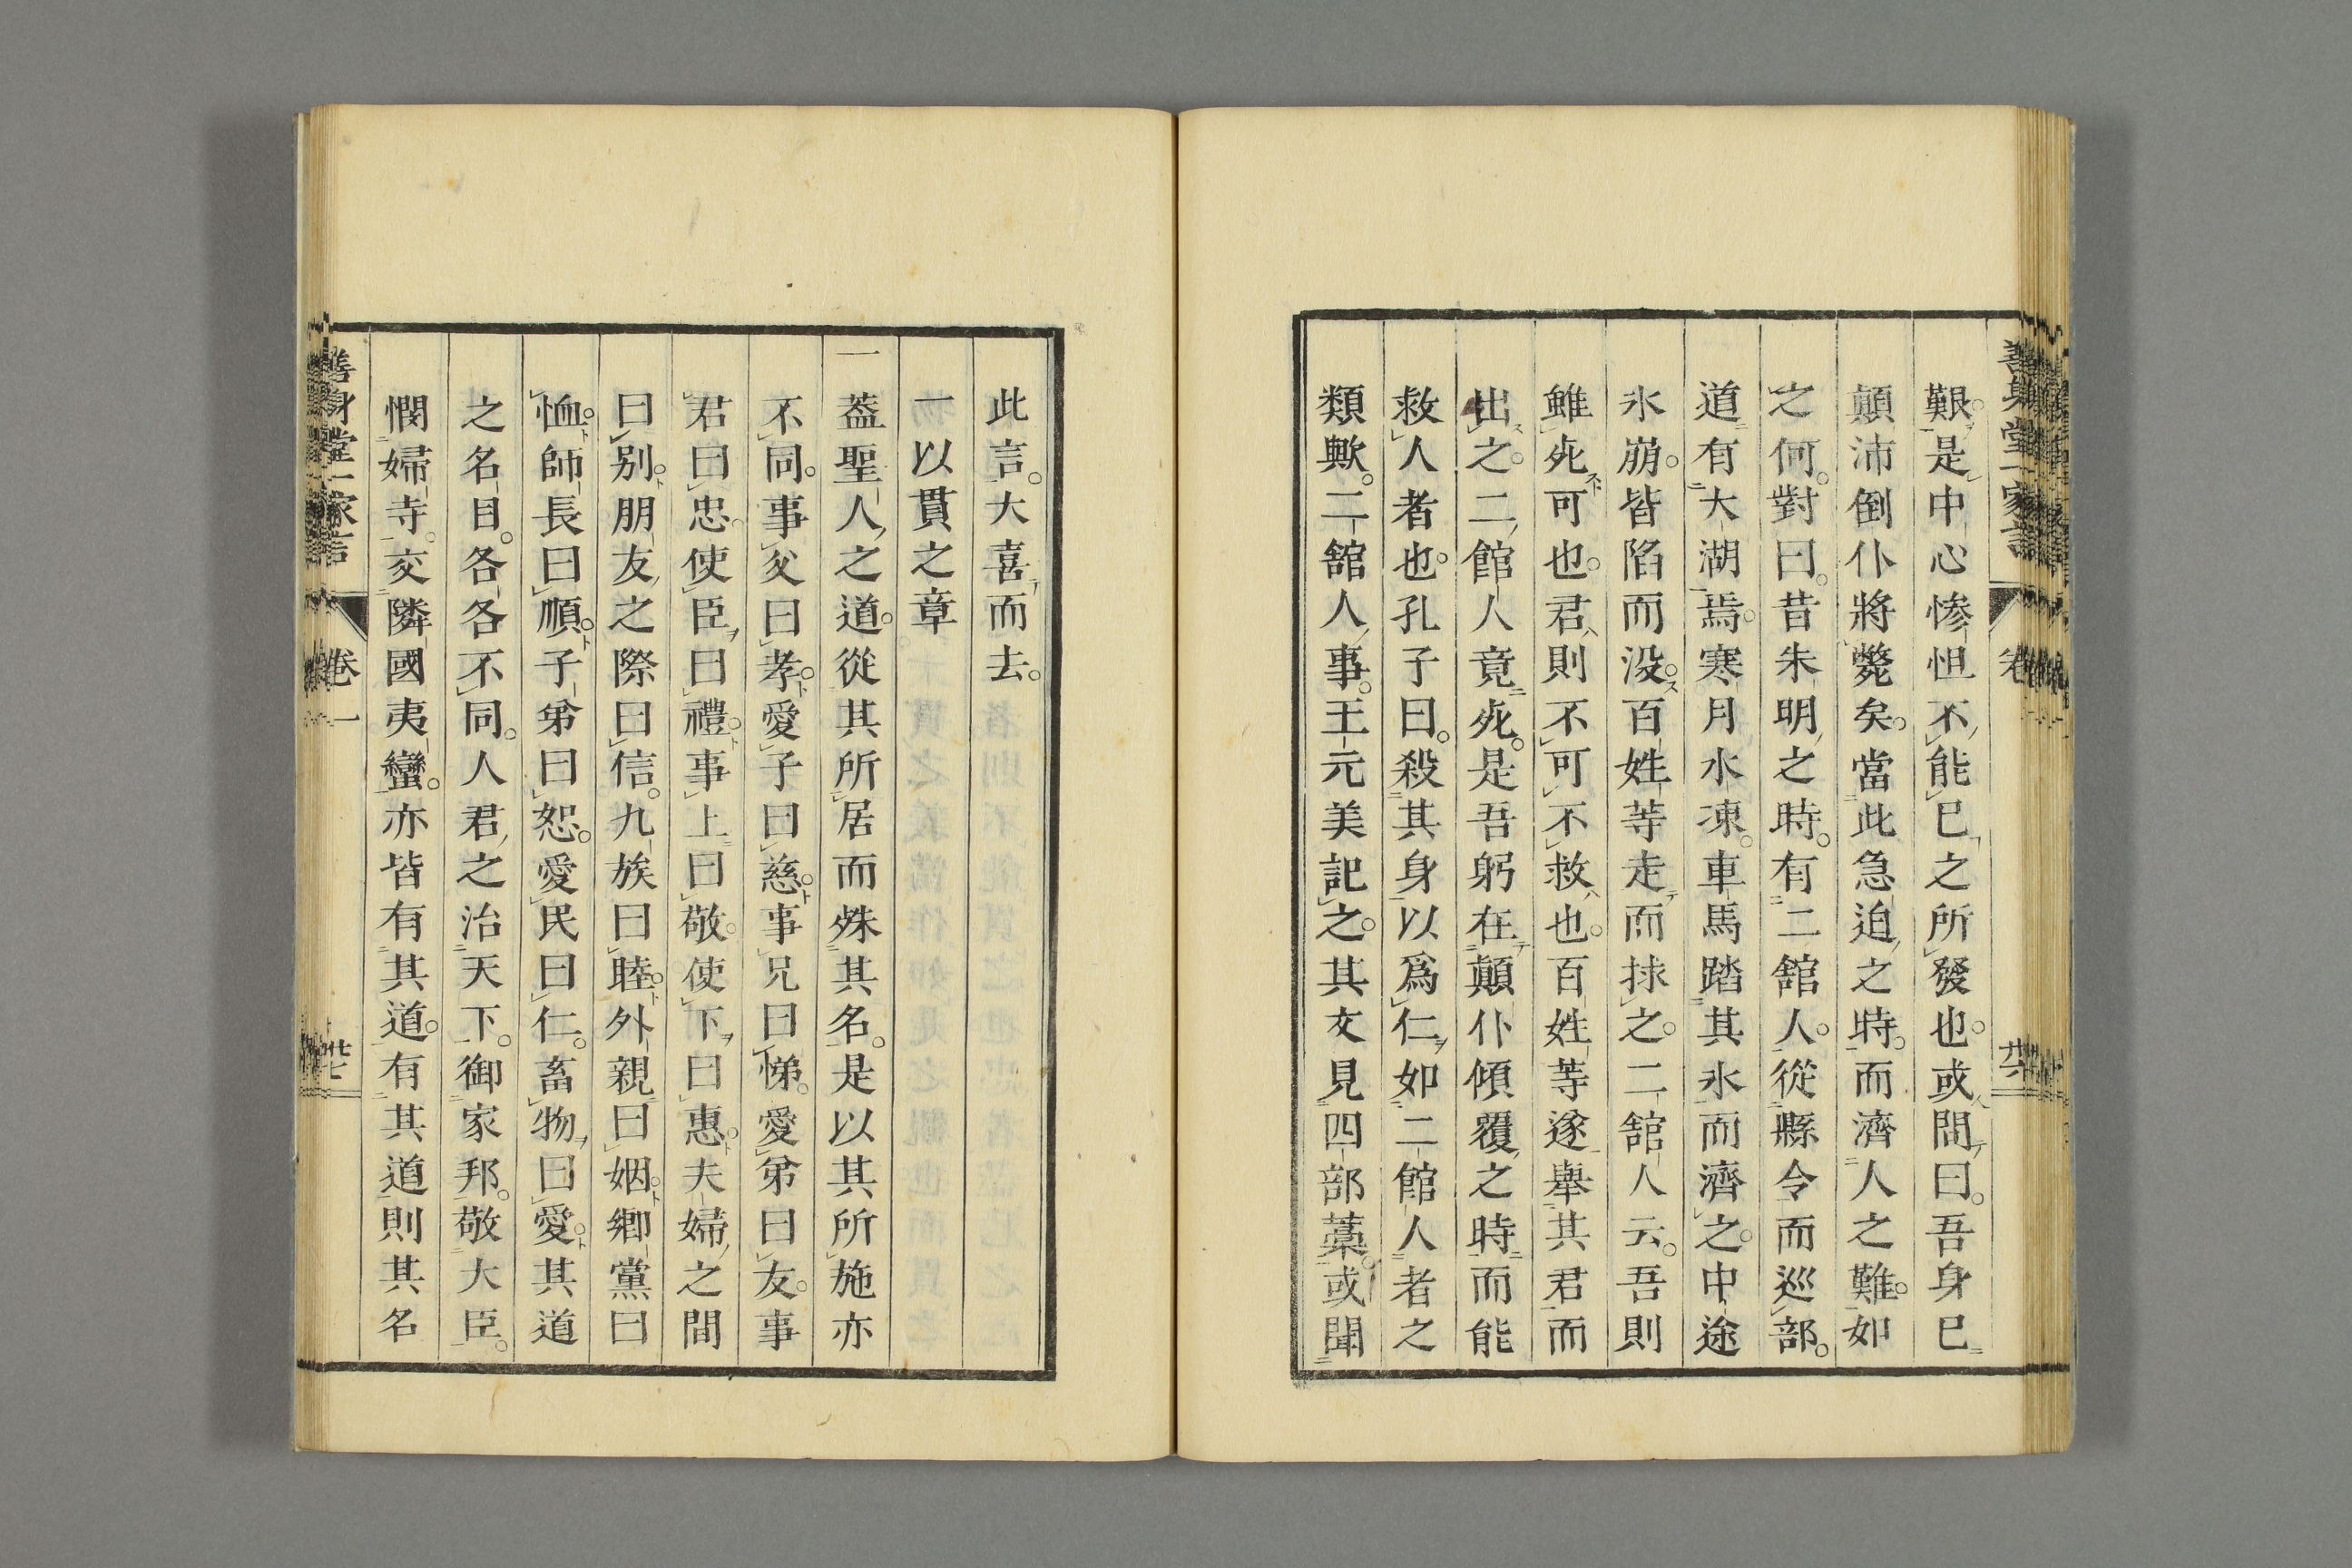 艱。是中心慘怛不能已之所發也。或問曰。吾身已
顛沛倒仆將斃矣。當此急迫之時。而濟人之難。如
之何。對曰。昔朱明之時。有二舘人。從縣令而巡部。
道有大湖焉。寒月水凍。車馬踏其氷而濟之。中途
氷崩。皆陷而没。百姓等走而捄之。二舘人云。吾則
雖死可也。君則不可不救也。百姓等遂舉其君而
出之。二館人竟死。是吾躬在顛仆傾覆之時而能
救人者也。孔子曰。殺其身以爲仁。如二館人者之
類歟。二舘人事。王元美記之。其文見四部藁。或聞
善身堂一家言 卷 廿六
此言。大喜而去。
一以貫之章
一蓋聖人之道。從其所居而殊其名。是以其所施亦
不同。事父曰孝。愛子曰慈。事兄曰悌。愛弟曰友。事
君曰忠。使臣曰禮。事上曰敬。使下曰惠。夫婦之間
曰別。朋友之際曰信。九族曰睦。外親曰姻。鄉黨曰
恤。師長曰順。子弟曰恕。愛民曰仁。畜物曰愛。其道
之名目。各各不同。人君之治天下。御家邦。敬大臣。
憫婦寺。交隣國夷蠻。亦皆有其道。有其道則其名
善身堂一家言 卷一 廿七